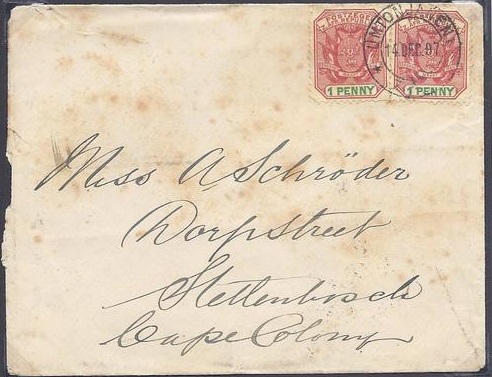 POSTZEGEL
1 PENNY
POSTZEGEL
1 PENNY
14 DEC. 97
Miss A Schröder
Dorpstreet
Stellenbosch
Cape Colony